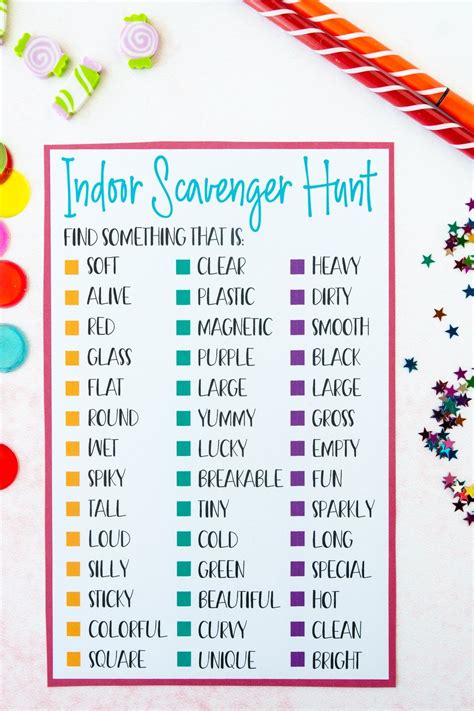 Indoor Scavenger Hunt
FIND SOMETHING THAT IS:
SOFT CLEAR HEAVY
ALIVE PLASTIC DIRTY
RED MAGNETIC SMOOTH
GLASS PURPLE BLACK
FLAT LARGE LARGE
ROUND YUMMY GROSS
WET LUCKY EMPTY
SPIKY BREAKABLE FUN
TALL TINY SPARKLY
LOUD COLD LONG
SILLY GREEN SPECIAL
STICKY BEAUTIFUL HOT
COLORFUL CURVY CLEAN
SQUARE UNIQUE BRIGHT